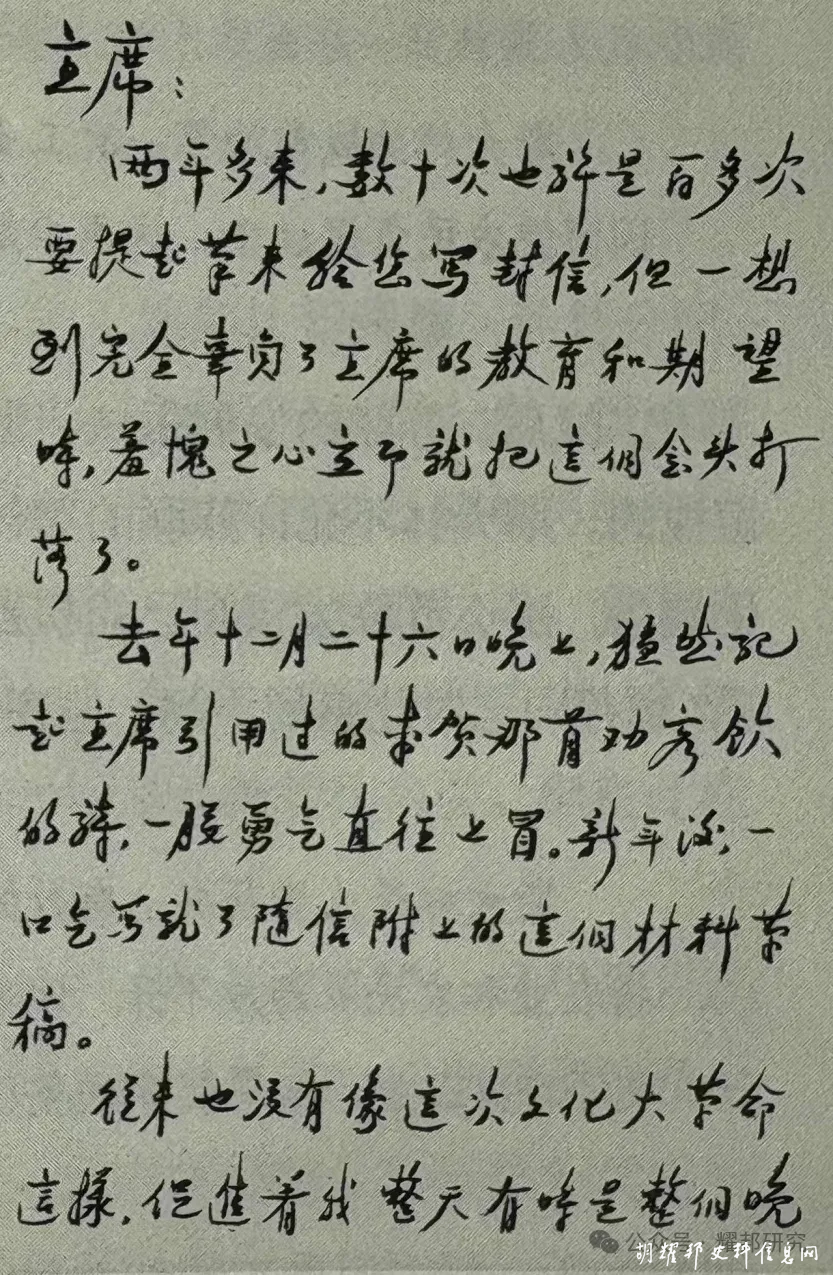 主席：
两年多来，数十次也许是百多次
要提起笔来给您写封信，但一想
到完全辜负了主席的教育和期望
时，羞愧之心立即就把这个念头打
落了。
去年十二月二十六日晚上，猛然记
起主席引用过的李贺那首劝客饮
的诗，一股勇气直往上冒。新年后，一
口气写就了随信附上的這個材料草
稿。
从来也没有像這次文化大革命
這樣，促進着我整天有时是整個晚
公众号·耀邦研究
胡耀邦史料信息网